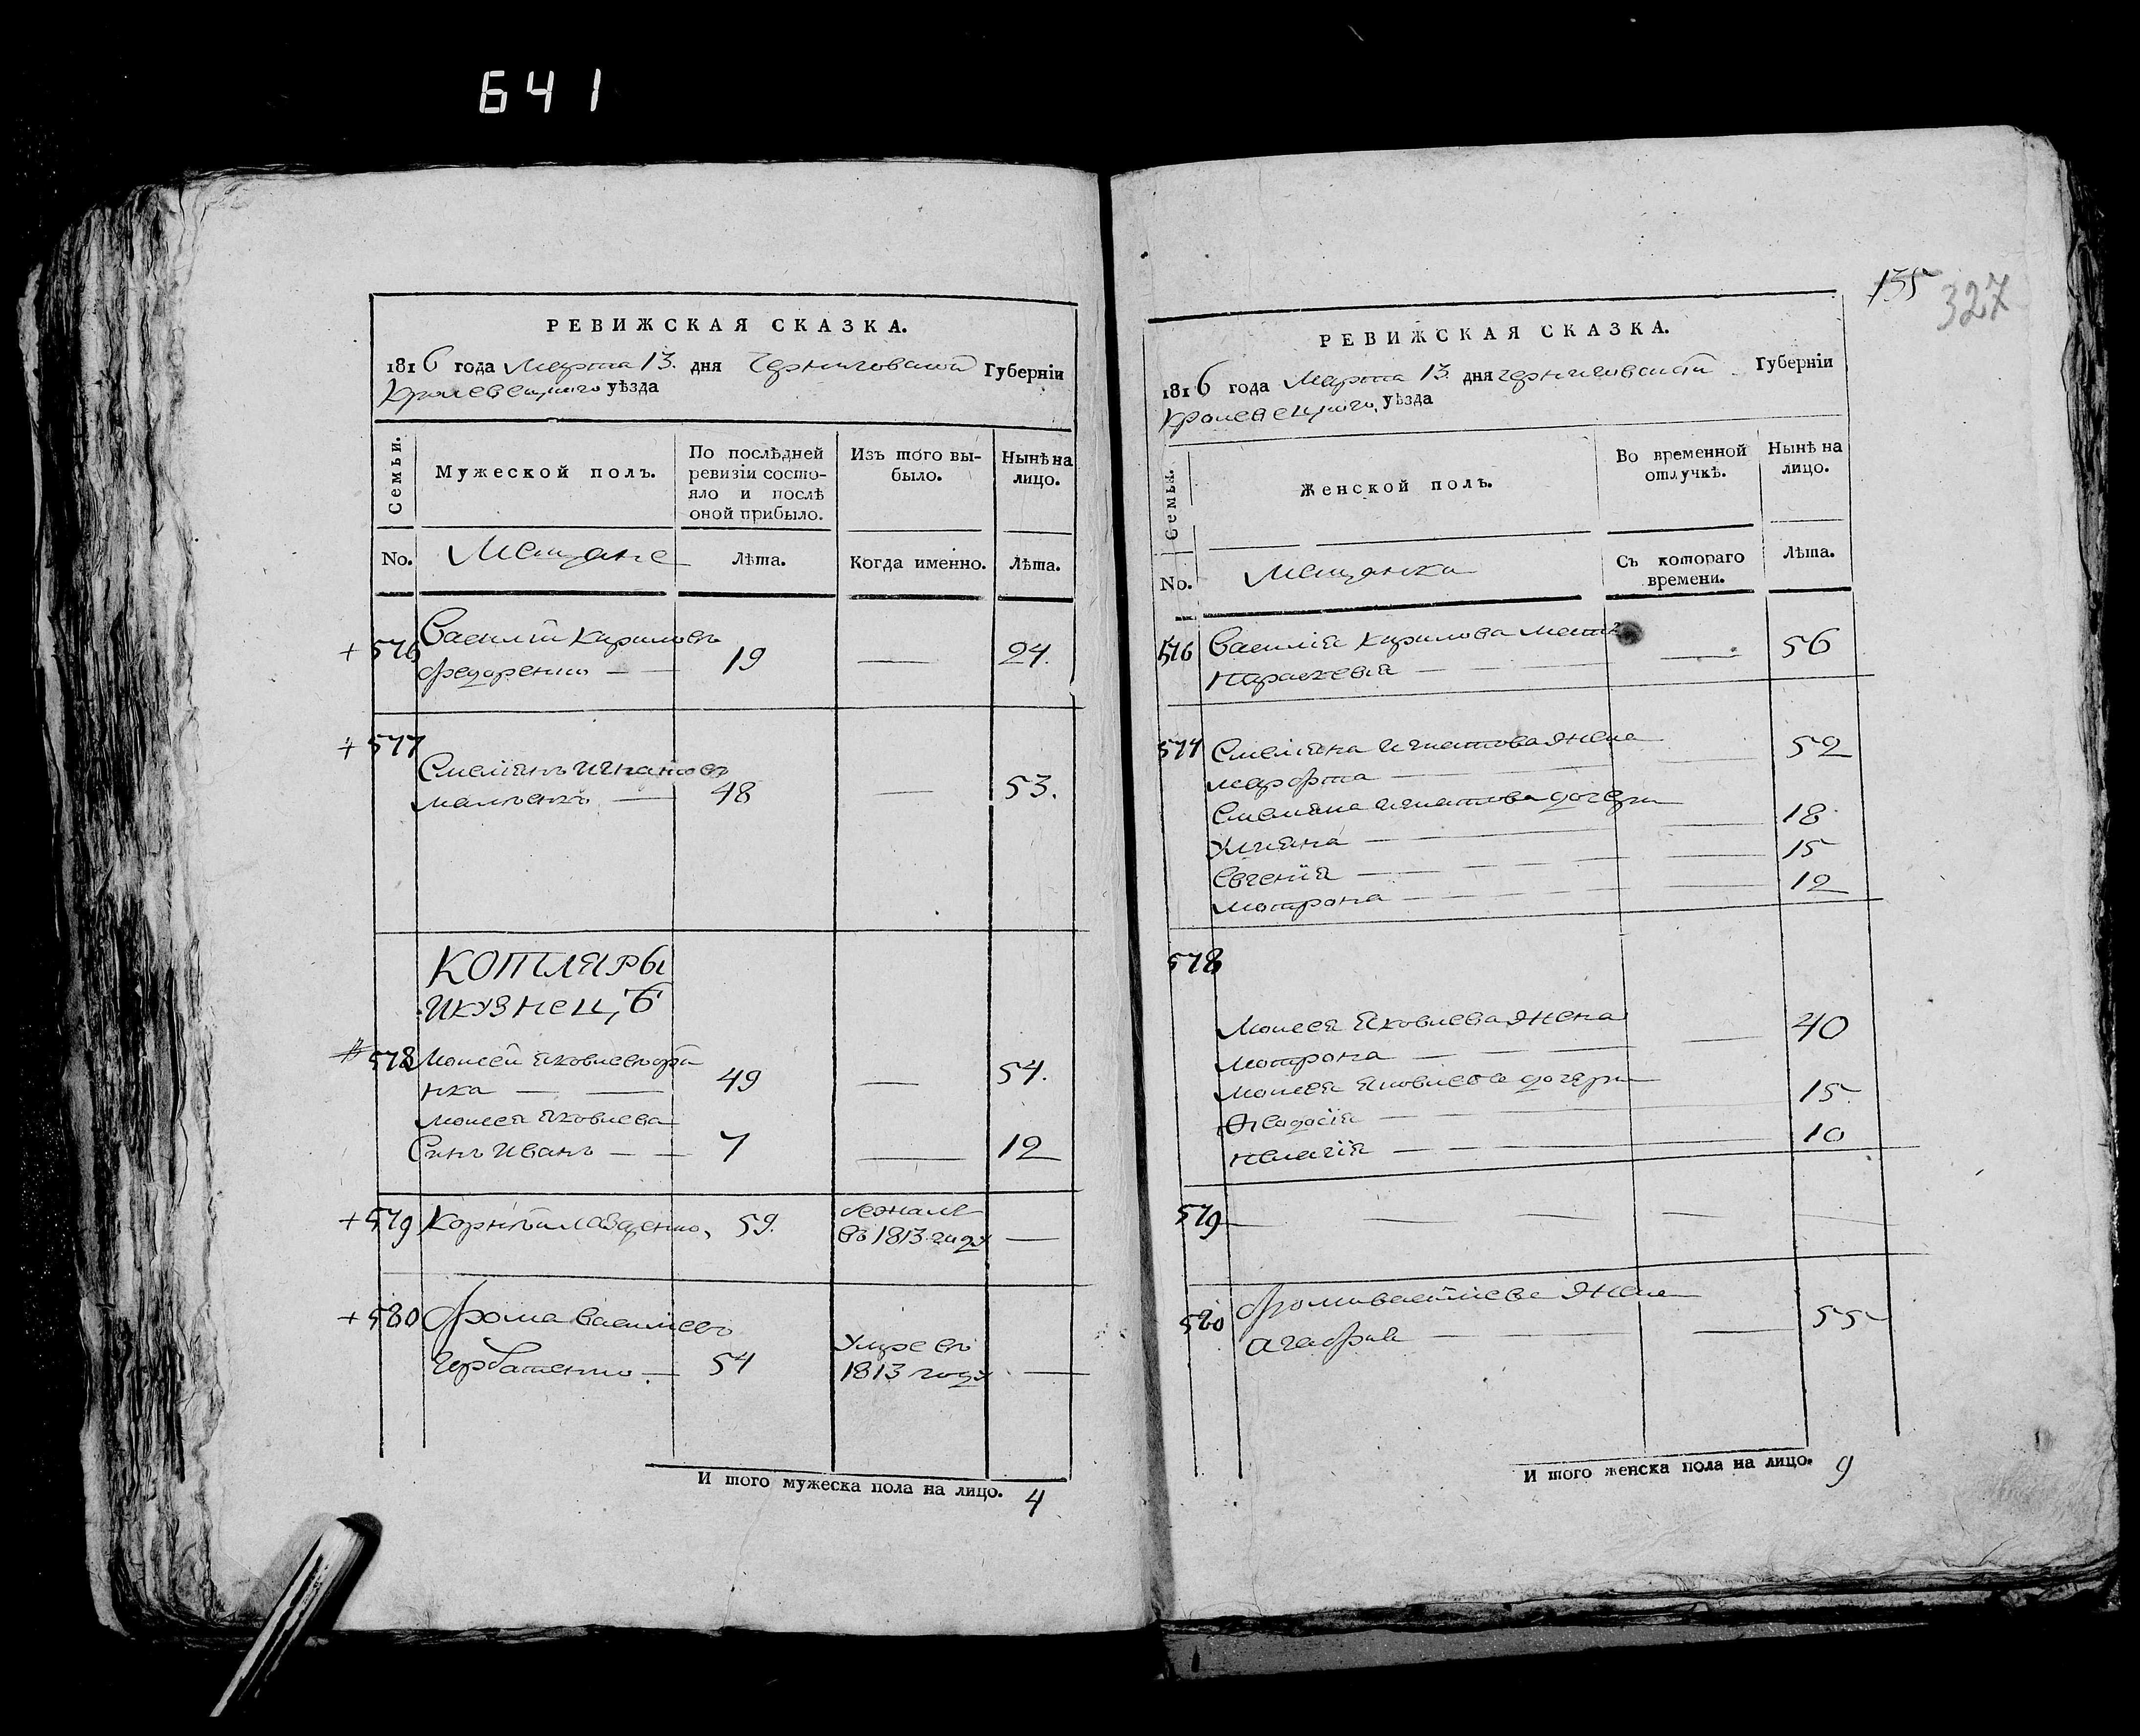 641
РЕВИЖСКАЯ СКАЗКА.
1816 года Марта 13. дня Черниговской Губерніи
Кролевецкого уѣзда
Семьи.
Мужеской полъ.
По послѣдней ревизіи состо-
яло и послѣ
оной прибыло.
Изъ того вы-
было.
Нынѣ на
лицо.
No.
Мещане
Лѣта.
Когда именно.
Лѣта.
+ 576 Василій Кириловъ
Федоренко — 19 — 24.
+ 577
Емельянъ
48 — 53.
КОТЛЯРЫ
И КУЗНЕЦЫ
578 Моисей Яковлевъ
нка — 49 — 54.
Моисея Яковлева
Сынъ Иванъ — 7 — 12
+ 579 Корнѣй 59.
въ 1813 году —
+ 580 Фома Васильевъ
Горбатенко — 54
Умре въ
1813 году —
И того мужеска пола на лицо. 4
135
327
РЕВИЖСКАЯ СКАЗКА.
1816 года Марта 13 дня Черниговской Губерніи
Кролевецкого уѣзда
Семьи.
Женской полъ.
Во временной
отлучкѣ.
Нынѣ на
лицо.
No.
Мещанки
Съ котораго
времени.
Лѣта.
576 Василія Кирилова мать
Параскевія — 56
577 Емельяна Игнатова жена
Марфа — 52
Емельяна Игнатова дочери
Улияна — 18
Евгенія — 15
Мотрона — 12
578
Моисея Яковлева жена
Мотрона — 40
Моисея Яковлева дочери
Феодосія — 15
Пелагія — 10
579 —
580 Фомы Васильева жена
Агафия — 55
И того женска пола на лицо. 9